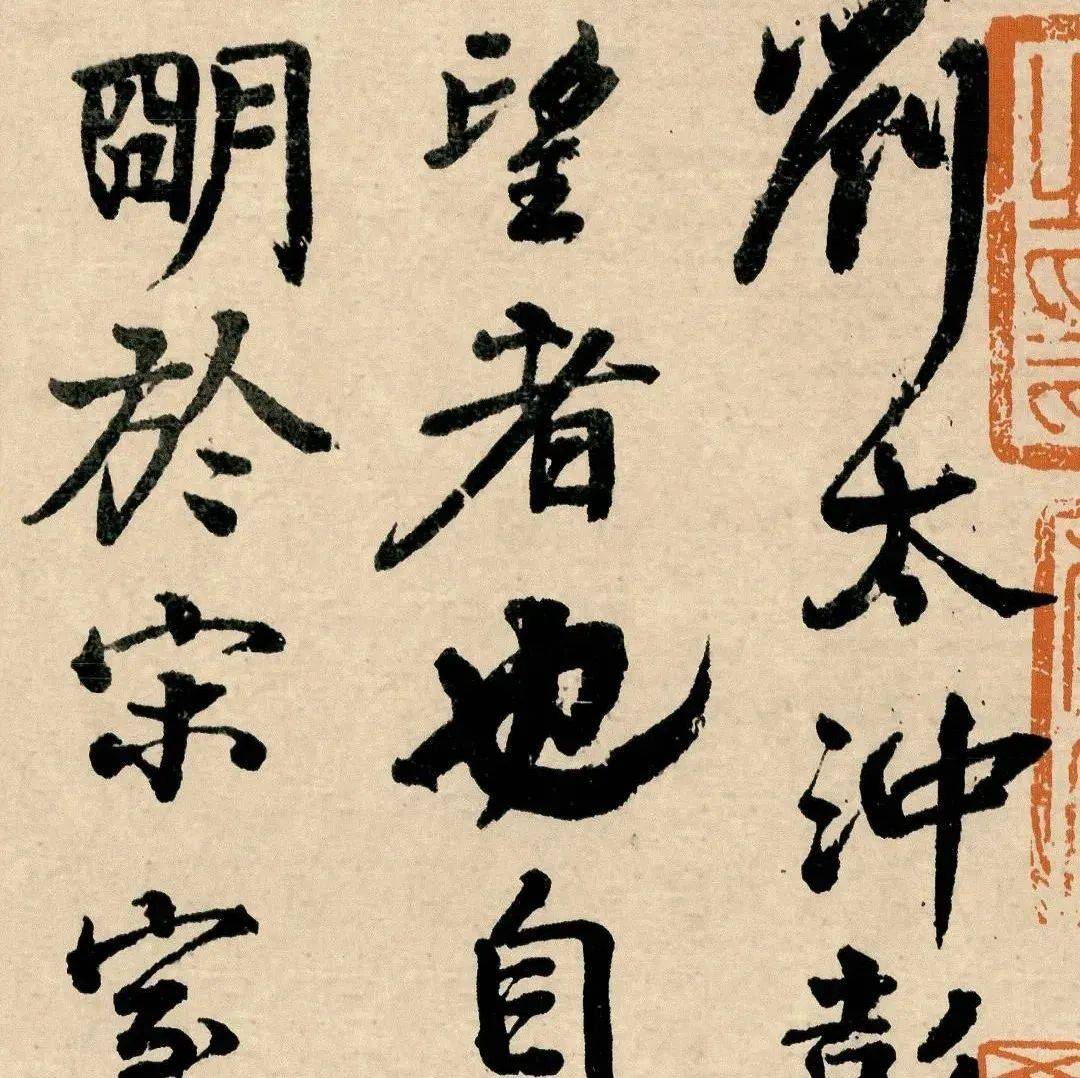 劉太沖彭
望者也自
朙於宋室